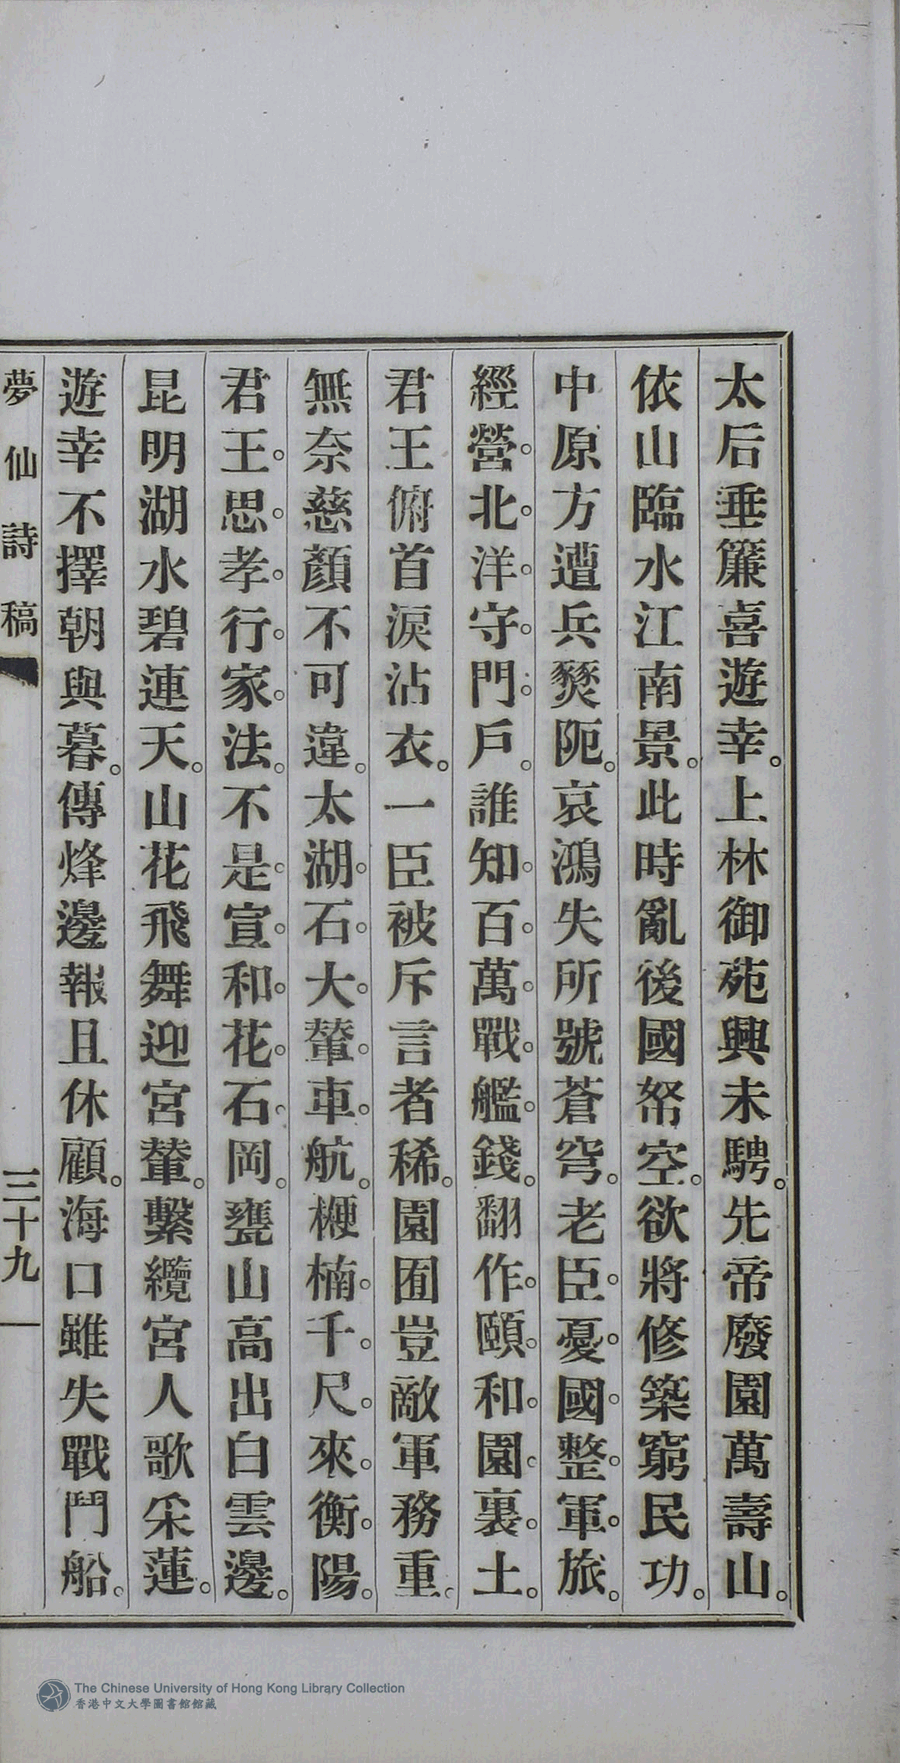 太后垂簾喜遊幸。上林御苑興未騁。先帝廢園萬壽山。
依山臨水江南景。此時亂後國帑空。欲將修築窮民功。
中原方遭兵燹阨。哀鴻失所號蒼穹。老臣憂國整軍旅。
經營北洋守門戶。誰知百萬戰艦錢。翻作頤和園裏土。
君王俯首淚沾衣。一臣被斥言者稀。園囿豈敵軍務重。
無奈慈顏不可違。太湖石大輦車航。楩楠千尺來衡陽。
君王思孝行家法。不是宣和花石岡。甕山高出白雲邊。
昆明湖水碧連天。山花飛舞迎宮輦。繫纜宮人歌采蓮。
遊幸不擇朝與暮。傳烽邊報且休顧。海口雖失戰鬥船。
夢仙詩稿
三十九
The Chinese University of Hong Kong Library Collection
香港中文大學圖書館館藏